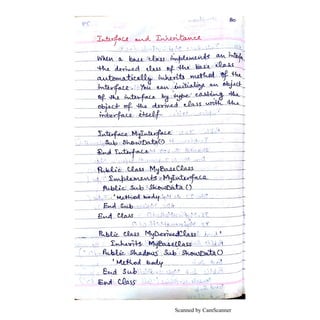 80
Interface and Inheritance
When a base class implements an
the derived class of the base class
automatically inherits method of the
Interface. You can initialize an object
of the interface by type casting the
object of the derived class with the
interface itself.
Interface MyInterface
Sub ShowData()
End Interface
Public Class MyBaseClass
Implements MyInterface
Public Sub ShowData()
'Method body
End Sub
End Class
Public Class MyDerivedClass
Inherits MyBaseClass
Public Shadows Sub ShowData()
'Method body
End Sub
End Class
Scanned by CamScanner